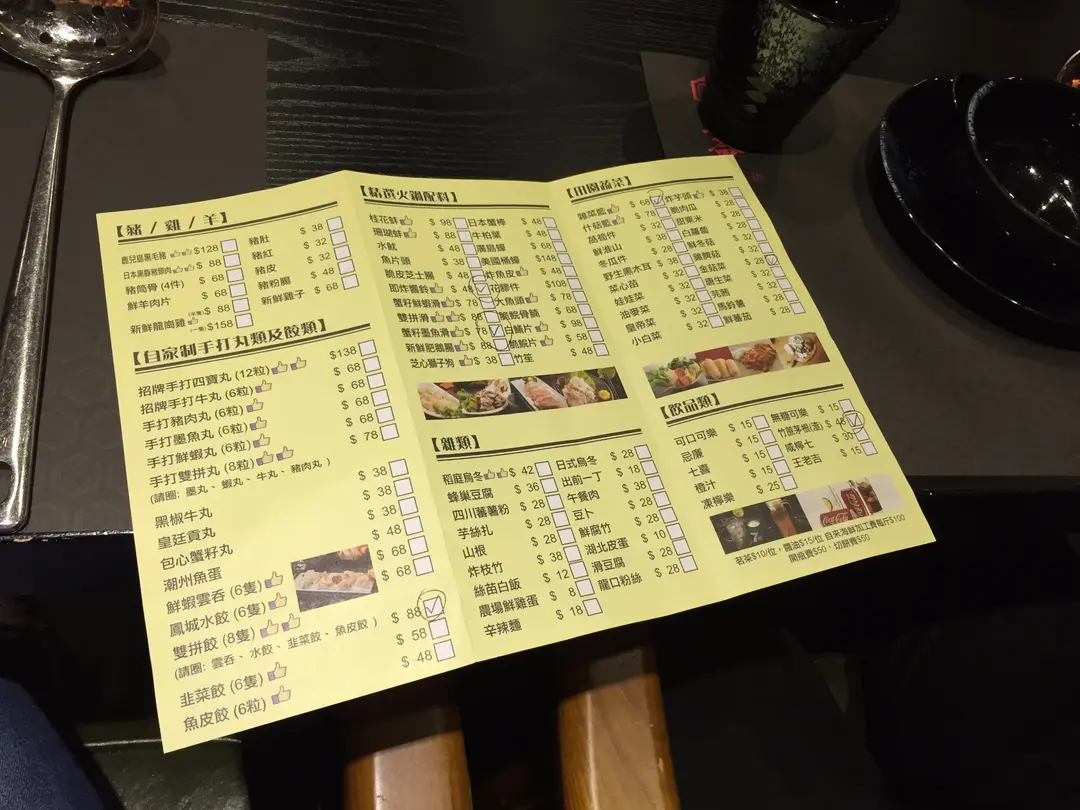 【豬 / 雞 / 羊】
鹿兒島黑毛豬 $128
日本黑豚豬頸肉 $ 88
豬筒骨 (4件) $ 68
鮮羊肉片 $ 68
(半隻) $ 88
新鮮龍崗雞 (一隻) $158
豬肚 $ 38
豬紅 $ 32
豬皮 $ 32
豬粉腸 $ 48
新鮮雞子 $ 68
【自家制手打丸類及餃類】
招牌手打四寶丸 (12粒) $138
招牌手打牛丸 (6粒) $ 68
手打豬肉丸 (6粒) $ 68
手打墨魚丸 (6粒) $ 68
手打鮮蝦丸 (6粒) $ 68
手打雙拼丸 (8粒) $ 78
(請圈: 墨丸、蝦丸、牛丸、豬肉丸 )
黑椒牛丸 $ 38
皇廷貢丸 $ 38
包心蟹籽丸 $ 38
潮州魚蛋 $ 48
鮮蝦雲吞 (6隻) $ 68
鳳城水餃 (6隻) $ 68
雙拼餃 (8隻) $ 88
(請圈: 雲吞、水餃、韭菜餃、魚皮餃 )
韭菜餃 (6隻) $ 58
魚皮餃 (6粒) $ 48
【精選火鍋配料】
桂花蚌 $ 98
珊瑚蚌 $ 88
水魷 $ 48
魚片頭 $ 38
脆皮芝士腸 $ 48
即炸響鈴 $ 48
蟹籽鮮蝦滑 $ 78
雙拼滑
蟹籽墨魚滑 $ 78
新鮮肥鵝腸
芝心獅子狗 $ 38
日本蟹棒 $ 48
牛柏葉 $ 48
廣島蠔 $ 68
美國桶蠔 $148
炸魚皮 $ 48
花膠件 $108
大魚頭 $ 78
脆鯇骨腩 $ 68
白鱔片 $ 98
脆鯇片 $ 58
竹笙 $ 48
【雜類】
稻庭烏冬 $ 42
蜂巢豆腐 $ 36
四川蕃薯粉 $ 28
芋絲扎 $ 28
山根 $ 28
炸枝竹 $ 38
絲苗白飯 $ 12
農場鮮雞蛋 $ 8
辛辣麵 $ 18
日式烏冬 $ 28
出前一丁 $ 18
午餐肉 $ 38
豆卜 $ 28
鮮腐竹 $ 28
湖北皮蛋 $ 10
滑豆腐 $ 28
龍口粉絲 $ 28
【田園蔬菜】
雜菜籃 $ 68
什菇籃 $ 78
萵筍件
鮮淮山
冬瓜件
野生黑木耳 $ 38
菜心苗 $ 32
娃娃菜 $ 32
油麥菜 $ 32
皇帝菜 $ 32
小白菜 $ 32
炸芋頭 $ 38
脆肉瓜 $ 28
甜粟米 $ 28
白蘿蔔 $ 28
鮮冬菇 $ 28
雞脾菇 $ 28
金菇菜 $ 28
唐生菜 $ 32
芫茜 $ 28
馬鈴薯 $ 28
鮮蕃茄 $ 28
【飲品類】
可口可樂 $ 15
忌廉 $ 15
七喜 $ 15
橙汁 $ 15
凍檸樂 $ 25
無糖可樂 $ 15
竹蔗茅根(渣) $ 48
咸檸七 $ 30
王老吉 $ 15
茗茶$10/位，醬油$15/位 自來海鮮加工費每斤$100
開瓶費$50、切餅費$50